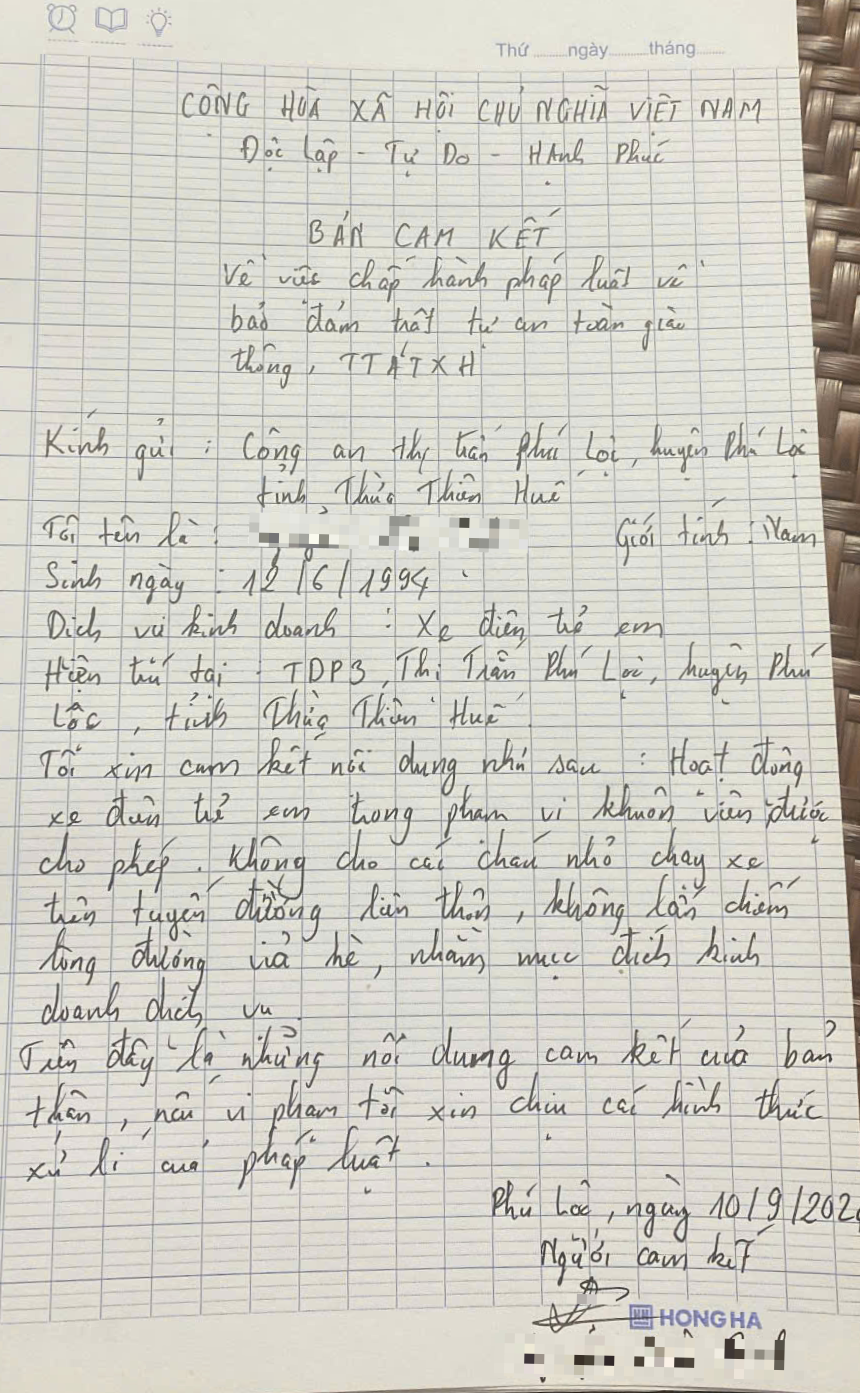 Thứ ngày tháng
CỘNG HÒA XÃ HỘI CHỦ NGHĨA VIỆT NAM
Độc lập - Tự Do - HẠnh Phúc
BẢN CAM KẾT
Về việc chấp hành pháp luật về
bảo đảm trật tự an toàn giao
thông, TTATXH
Kính gửi : Công an thị trấn Phú Lộc, huyện Phú Lộc
tỉnh Thừa Thiên Huế
Tôi tên là : Giới tính : Nam
Sinh ngày : 12/6/1994
Dịch vụ kinh doanh : Xe điện trẻ em
Hiện trú tại : TDP3, Thị Trấn Phú Lộc, huyện Phú
Lộc, tỉnh Thừa Thiên Huế
Tôi xin cam kết nội dung như sau : Hoạt động
xe điện trẻ em trong phạm vi khuôn viên được
cho phép. Không cho các cháu nhỏ chạy xe
trên tuyến đường liên thôn, không lấn chiếm
lòng đường vỉa hè, nhằm mục đích kinh
doanh dịch vụ
Trên đây là những nội dung cam kết của bản
thân, nếu vi phạm tôi xin chịu các hình thức
xử lí của pháp luật.
Phú Lộc, ngày 10/9/202
Người cam kết
HONG HA